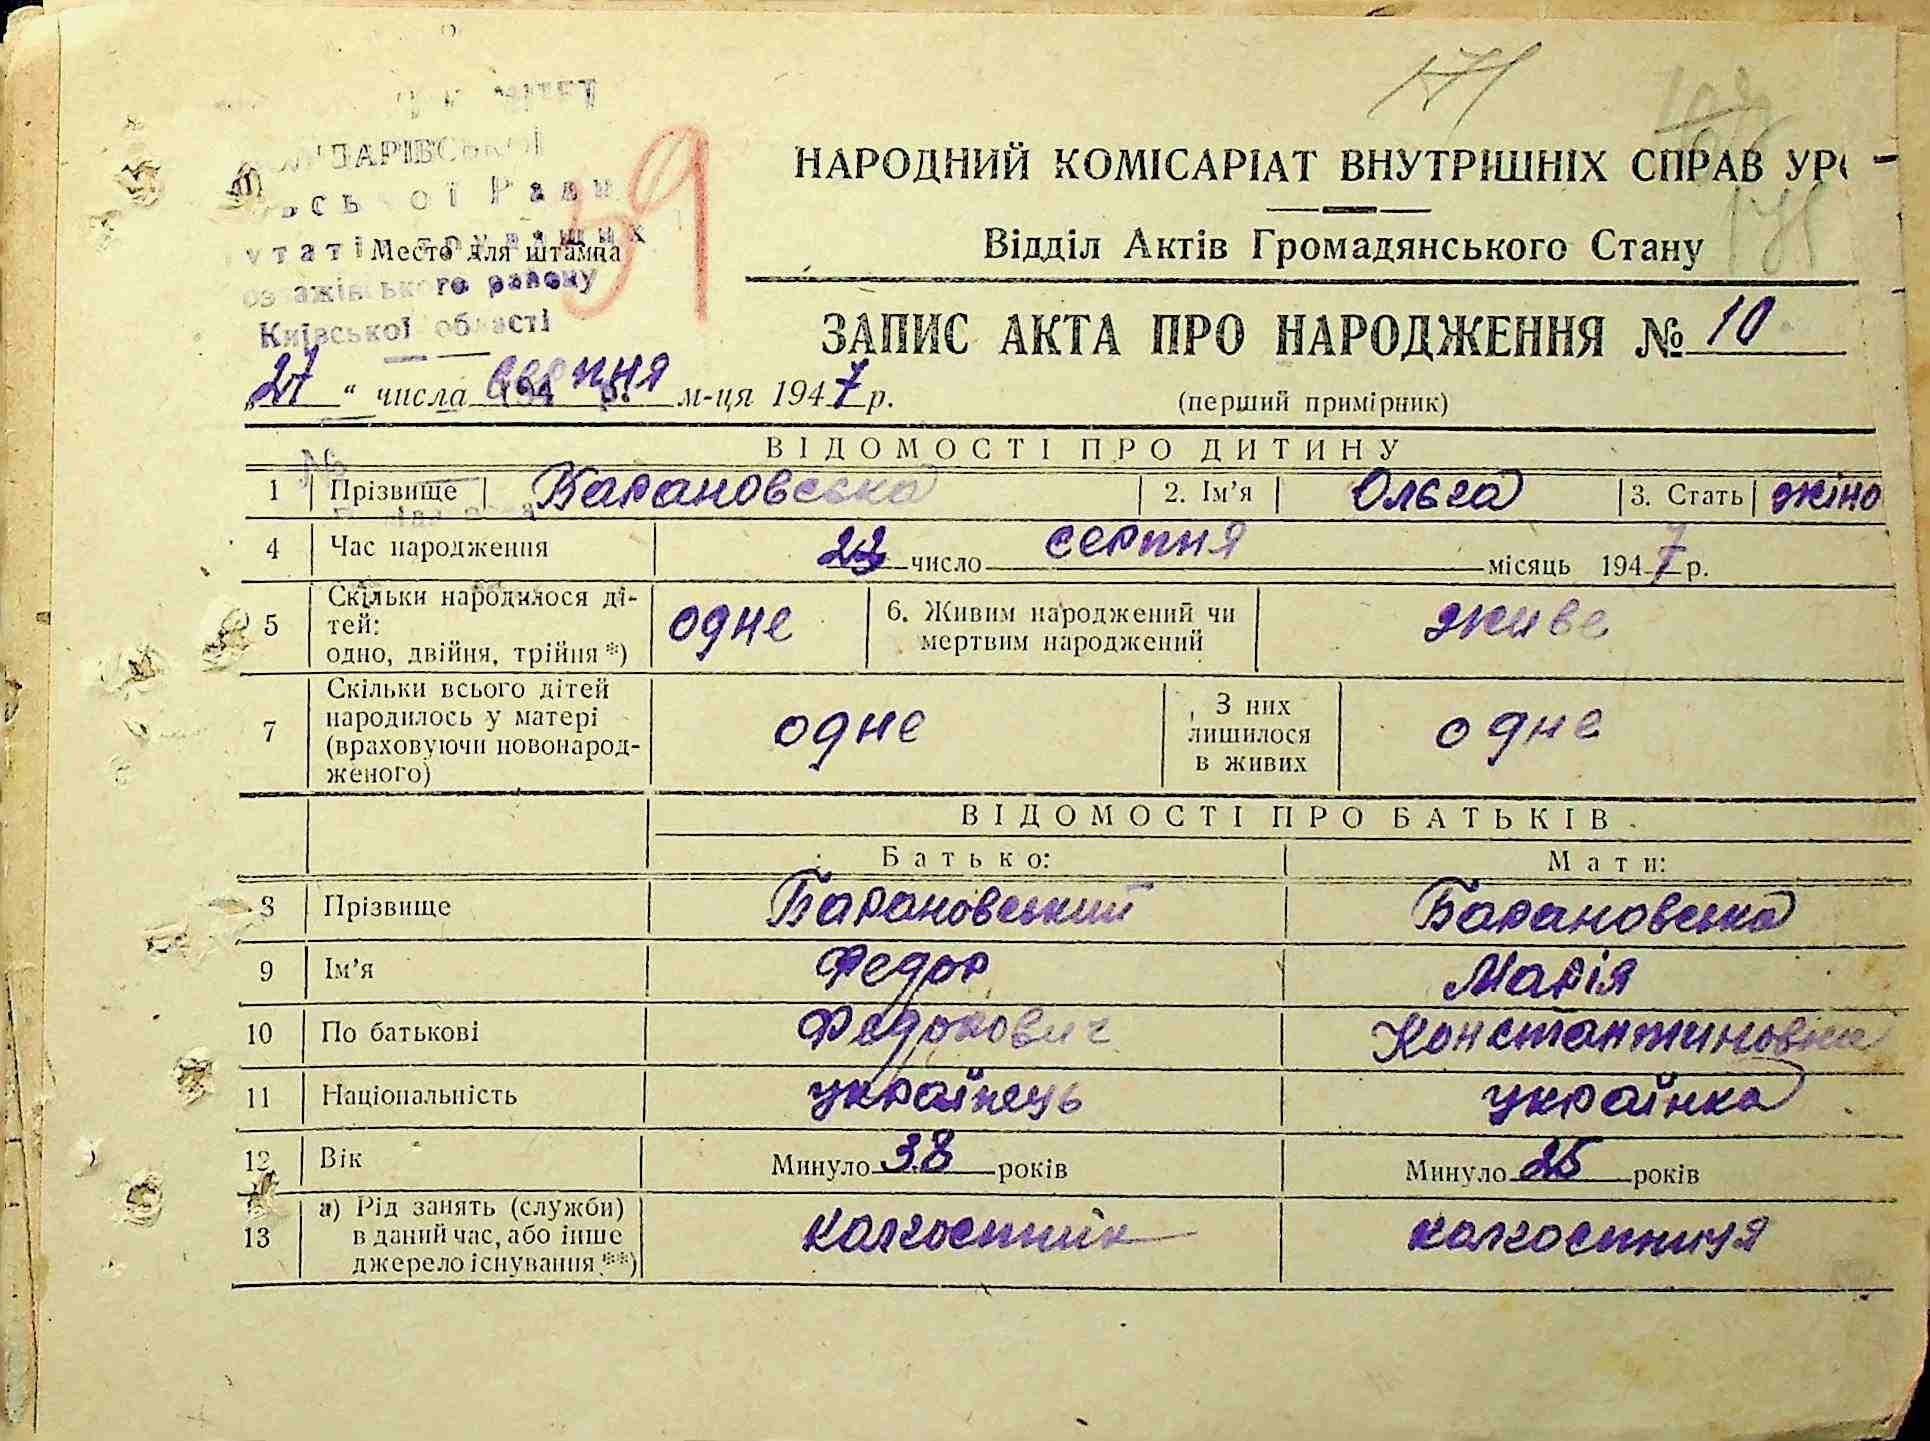 171
59
175
НАРОДНИЙ КОМІСАРІАТ ВНУТРІШНІХ СПРАВ УР
Відділ Актів Громадянського Стану
Место для штампа
району
Київської області
ЗАПИС АКТА ПРО НАРОДЖЕННЯ № 10
„27“ числа серпня м-ця 1947 р.
(перший примірник)
ВІДОМОСТІ ПРО ДИТИНУ
1 Прізвище Барановська 2. Ім'я Ольга 3. Стать жіно
4 Час народження число серпня місяць 1947 р.
5 Скільки народилося ді-
тей:
одно, двійня, трійня *) одне 6. Живим народжений чи
мертвим народжений живе
7 Скільки всього дітей
народилось у матері
(враховуючи новонарод-
женого) одне З них
лишилося
в живих одне
ВІДОМОСТІ ПРО БАТЬКІВ
Батько: Мати:
8 Прізвище Барановський Барановська
9 Ім'я Федор Марія
10 По батькові Федорович Константиновна
11 Національність українець українка
12 Вік Минуло 38 років Минуло 25 років
13 а) Рід занять (служби)
в даний час, або інше
джерело існування **) колгоспник колгоспниця